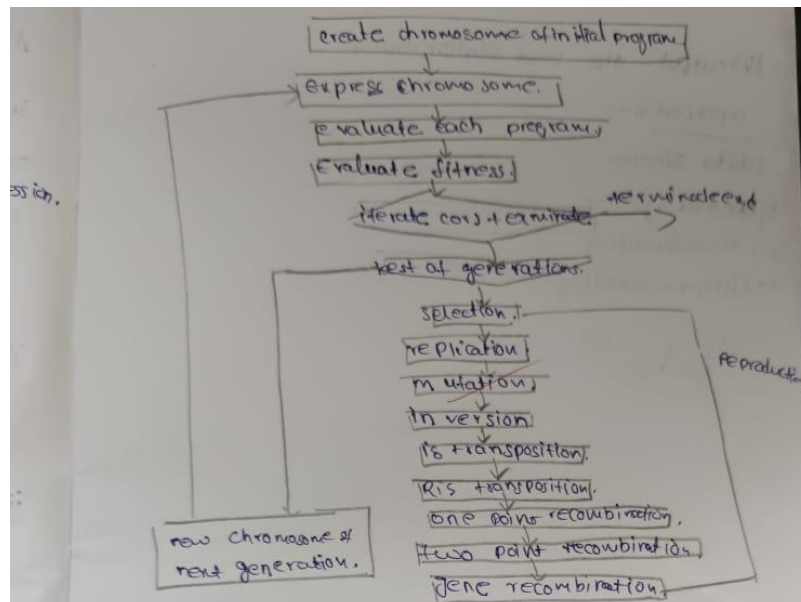 create chromosome of initial program
express chromosome.
ssion.
evaluate each program,
Evaluate fitness.
iterate (or) terminate
terminate end
best of generations.
selection.
replication
Reproduction
mutation,
inversion
is transposition.
Ris transposition.
one point recombination.
two point recombination,
gene recombination.
new chromosome of
next generation.